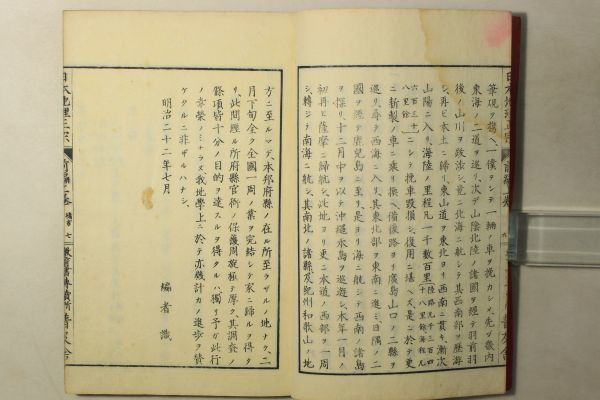 筆硯ヲ携ヘ一僕ヲシテ一輛ノ車ヲ挽カシメ先ダ畿内
東海ノ二道ヲ巡リ次デ山陰北陸ノ諸國ヲ經テ羽前羽
後ノ山川ヲ跋渉シ竟ニ北海ニ航シテ其西南部ヲ歴游
シ再ビ本土ニ歸リ東山道ヲ東北ヨリ西南ニ貫キ漸次
山陽ニ入リ海陸ノ里程凡一千數百里
ニシテ挽車毀損シ復用ニ堪ヘズ是ニ於テ更
ニ新製ノ車ニ乘リ換ヘ備後路ヨリ廣島山口ノ二縣ヲ
巡リ尋デ西海ニ入リ其東北部ヲ東南ニ進ミ日隅ノ二
國ヲ經テ鹿兒島ニ至リ是ヨリ海ニ航シテ西南ノ諸島
ヲ探リ十二月中ヲ以テ沖繩本島ヲ巡遊シ本年一月ノ
初再ビ薩摩ニ歸航シ此地ヨリ更ニ本道ノ西部ヲ一周
シ轉ジテ南海ニ航シ其南北ノ諸縣及紀州和歌山ノ地
方ニ至ルマデ本邦府縣ノ在ル所至ラザルノ地ナク二
月下旬全ク全國一周ノ業ヲ完結シテ家ニ歸ルヲ得タ
リ此間經ル所府縣官衙ノ保護周旋極テ厚ク其調査ノ
條項皆十分ノ目的ヲ達スルヲ得タルハ獨リ予ガ此行
ノ幸榮ノミナラズ我地學上ニ於テ亦幾計カノ進歩ヲ贊
ケタルニ非ザルハナシ
明治二十二年七月
編者識